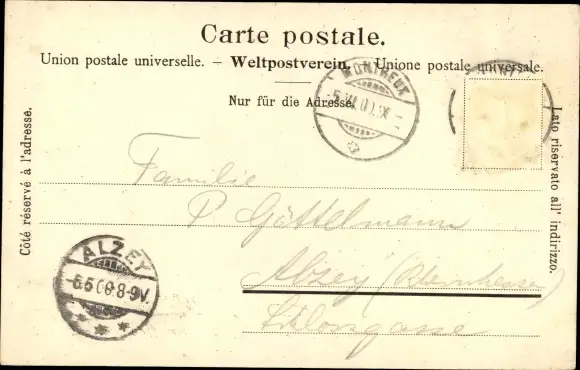 Carte postale.
Union postale universelle. – Weltpostverein. – Unione postale universale.
Nur für die Adresse.
Côté réservé à l'adresse.
Lato riservato all' indirizzo.
MONTREUX
Familie
P. Göttelmann
Alzey (Rheinhessen)
Schlossgasse
ALZEY
8-9V.